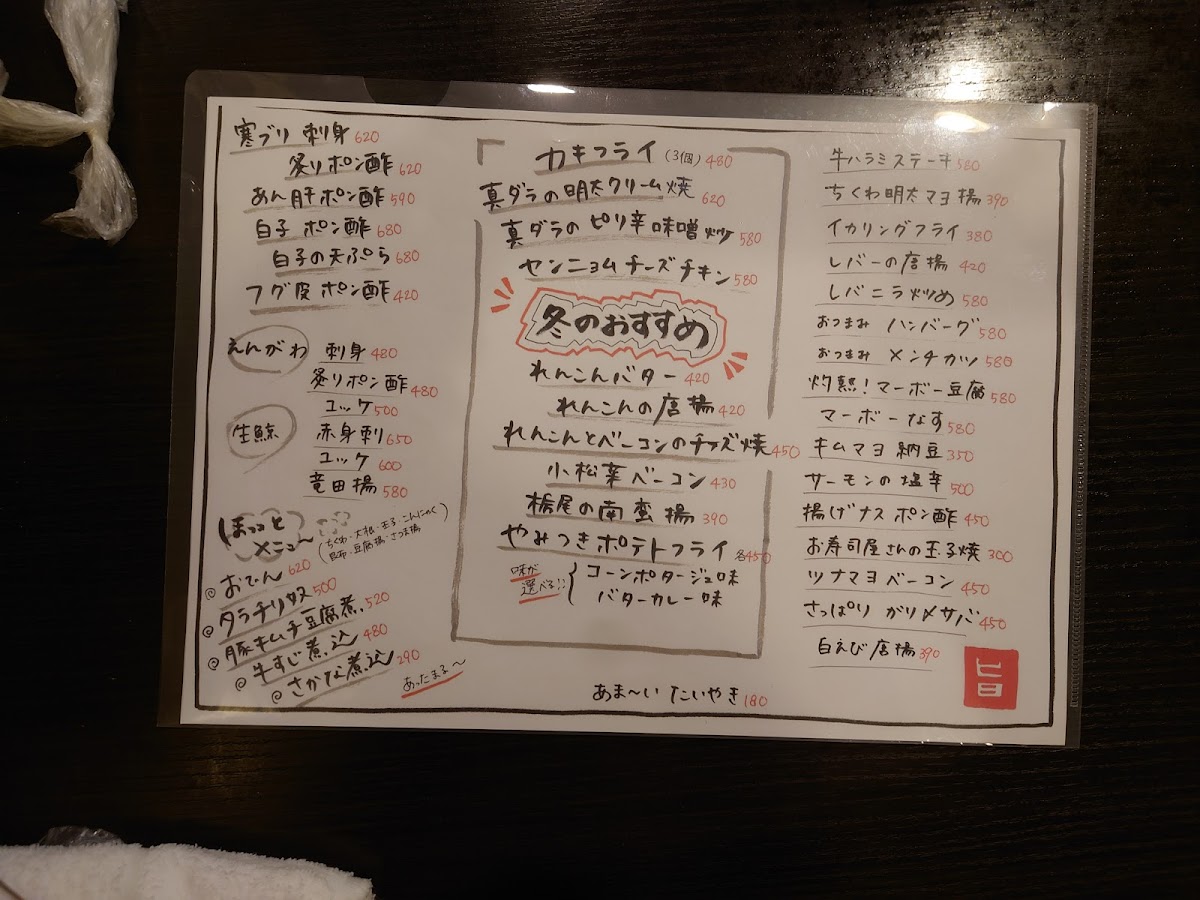 寒ブリ 刺身 620
炙りポン酢 620
あん肝ポン酢 590
白子 ポン酢 680
白子の天ぷら 680
フグ皮 ポン酢 420
えんがわ 刺身 480
炙りポン酢 480
ユッケ 500
生鯨 赤身刺 650
ユッケ 600
竜田揚 580
ほっっと
メニュー
(ちくわ・大根・玉子・こんにゃく
昆布・豆腐揚・さつま揚)
@おでん 620
@タラチリ奴 500
@豚キムチ豆腐煮 520
@牛すじ煮込 480
@さかな煮込 290
あったまる〜
カキフライ (3個) 480
真ダラの明太クリーム焼 620
真ダラの ピリ辛味噌炒 580
ヤンニョムチーズチキン 580
冬のおすすめ
れんこんバター 420
れんこんの唐揚 420
れんこんとベーコンのチーズ焼 450
小松菜ベーコン 430
栃尾の南蛮揚 390
やみつきポテトフライ 各450
味が
選べる!!
コーンポタージュ味
バターカレー味
あま〜い たいやき 180
牛ハラミステーキ 580
ちくわ明太マヨ揚 390
イカリングフライ 380
レバーの唐揚 420
レバニラ炒め 580
おつまみ ハンバーグ 580
おつまみ メンチカツ 580
灼熱!マーボー豆腐 580
マーボーなす 580
キムマヨ納豆 350
サーモンの塩辛 500
揚げナスポン酢 450
お寿司屋さんの玉子焼 300
ツナマヨベーコン 450
さっぱり ガリ〆サバ 450
白えび唐揚 390
旨